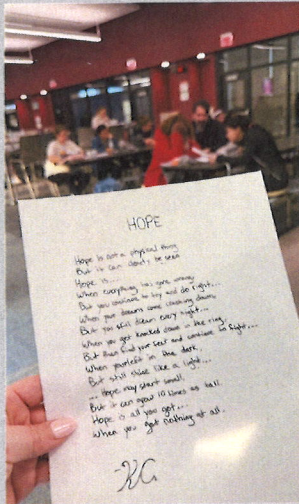 HOPE
Hope is not a physical thing
But it can clearly be seen
Hope is...
When everything has gone wrong
But you continue to try and do right...
When your dreams come crashing down,
But you still dream every night...
When you get knocked down in the ring,
But then find your feet and continue to fight...
When your left in the dark...
But still shine like a light...
...Hope may start small.
But it can grow 10 times as tall.
Hope is all you got...
When you got nothing at all.
-KC